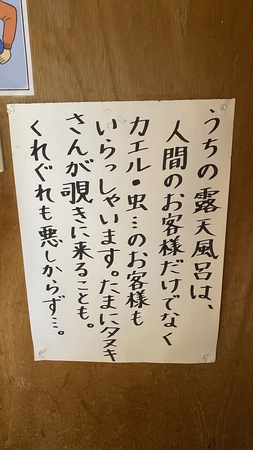 うちの露天風呂は、
人間のお客様だけでなく
カエル・虫…のお客様も
いらっしゃいます。たまにタヌキ
さんが覗きに来ることも。
くれぐれも悪しからず…。